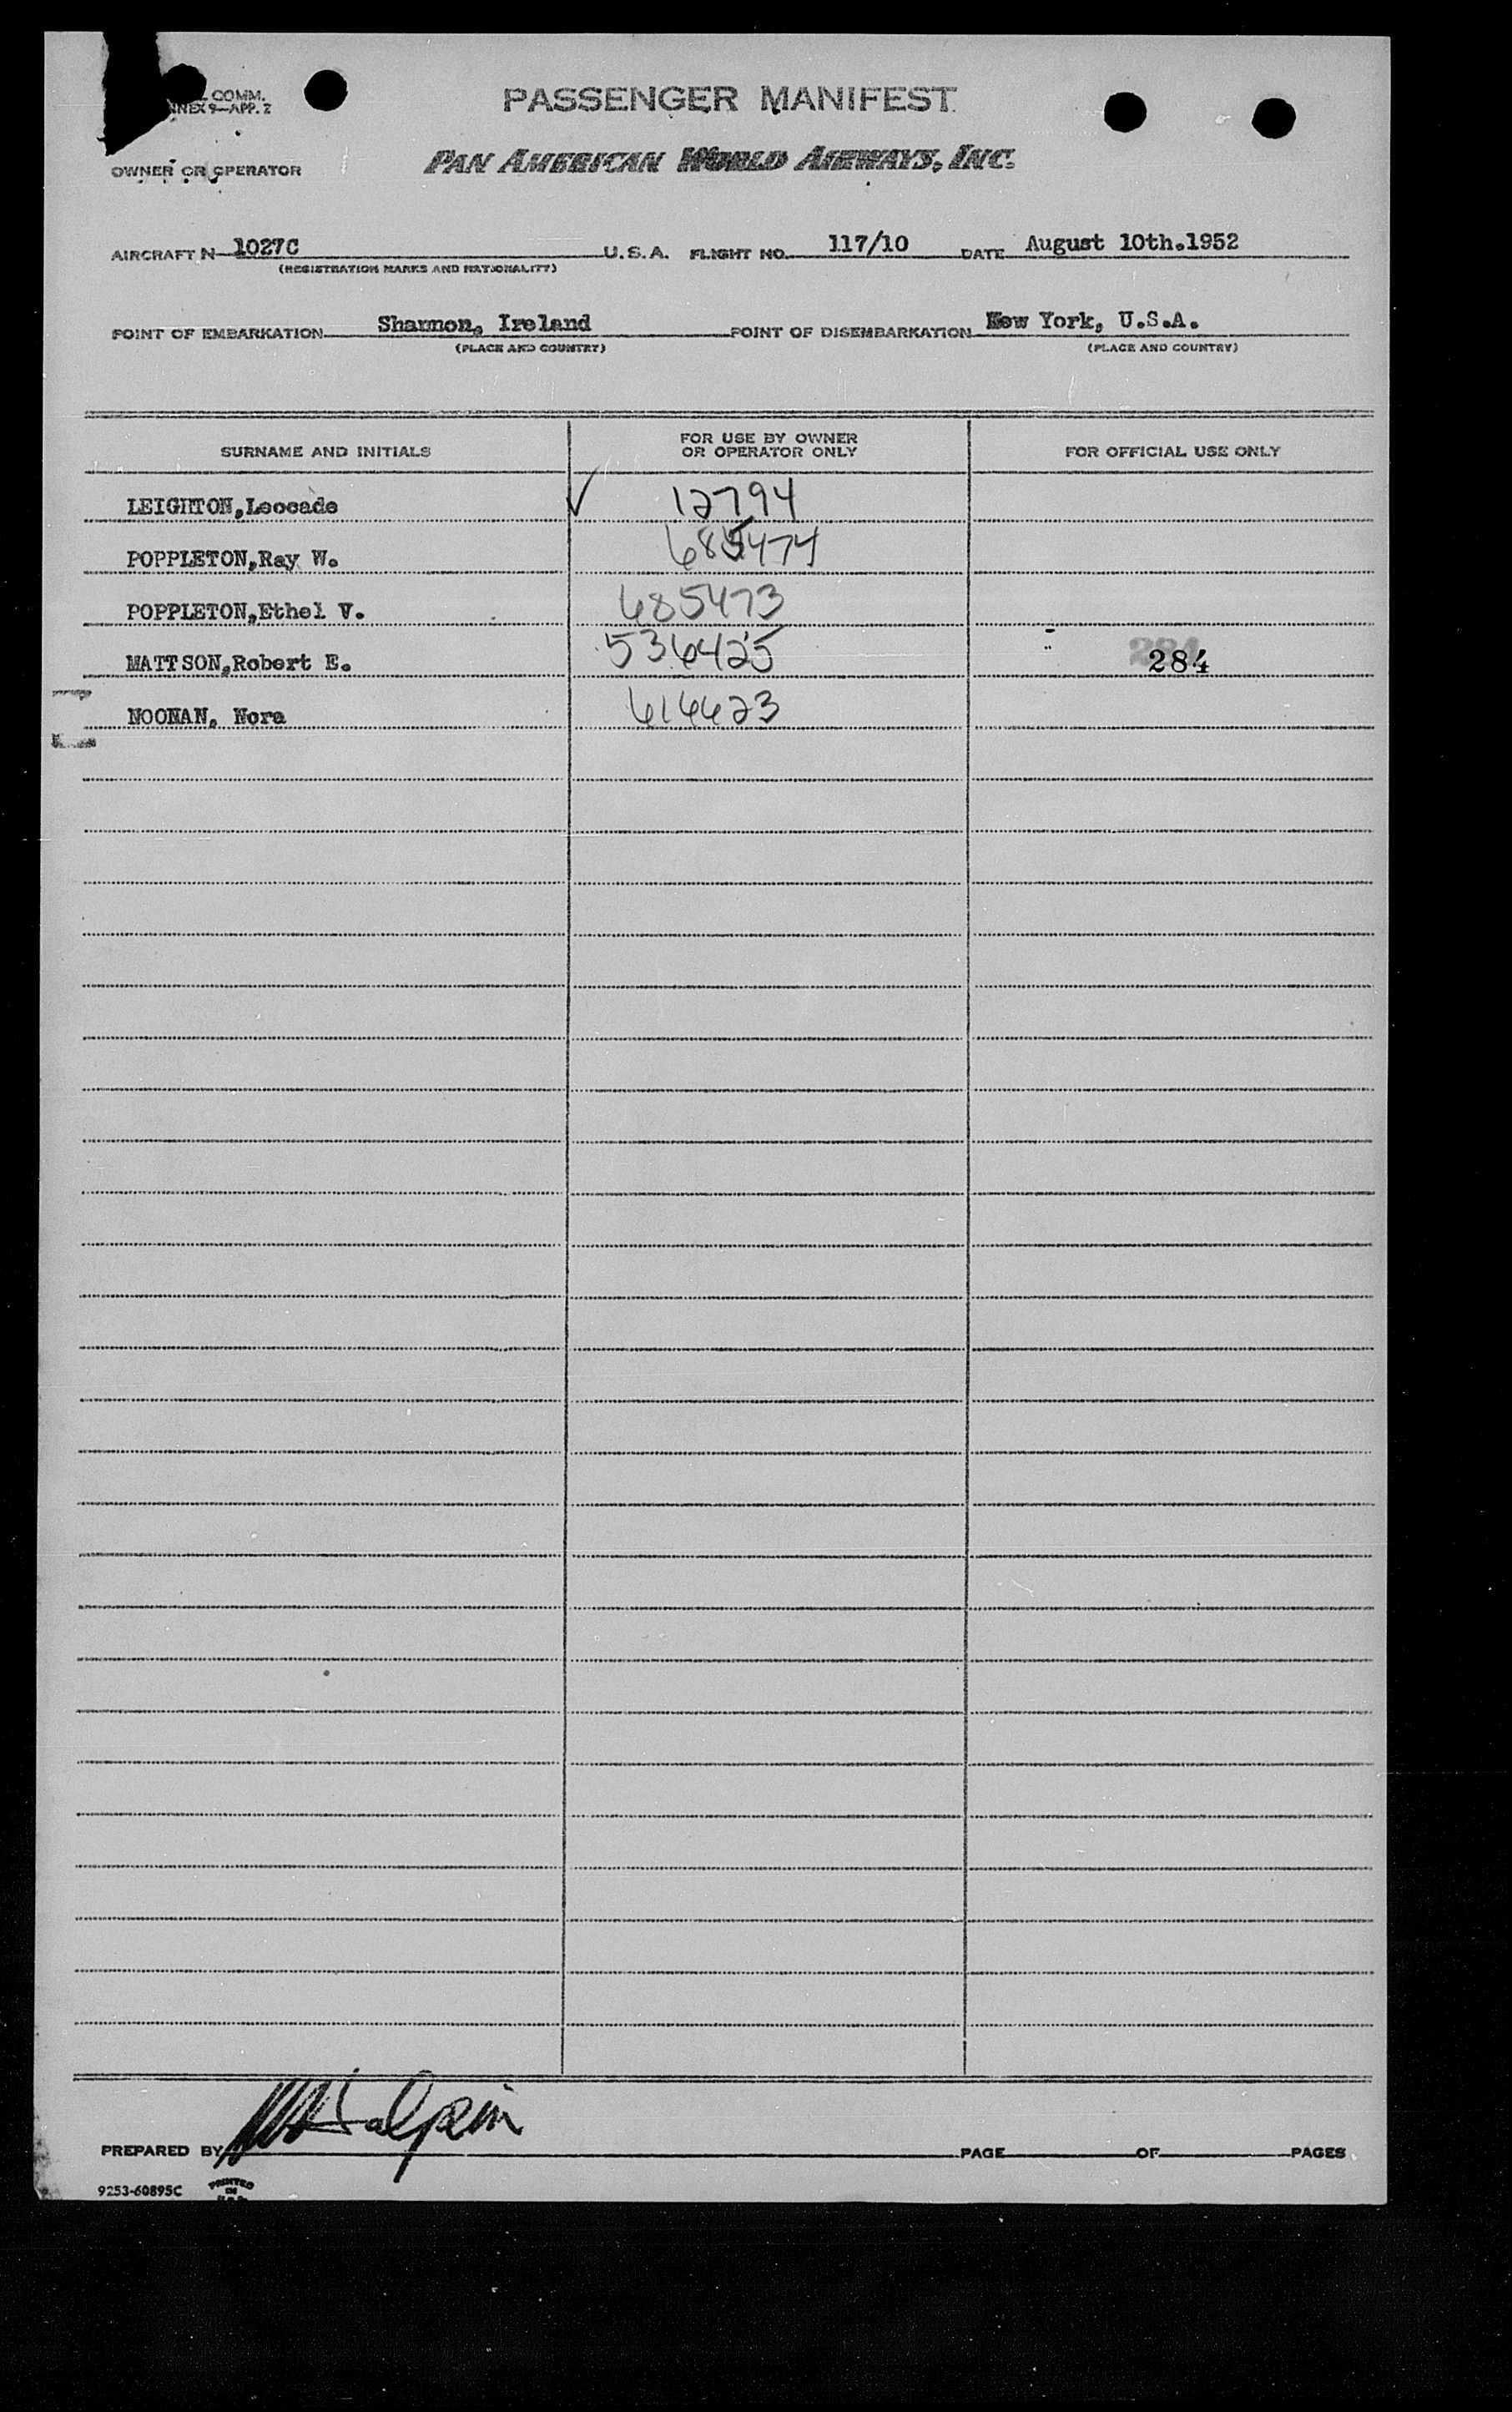 COMM.
ANNEX 9—APP. 2
PASSENGER MANIFEST
OWNER OR OPERATOR PAN AMERICAN WORLD AIRWAYS, INC.
AIRCRAFT N 1027C U.S.A. FLIGHT NO. 117/10 DATE August 10th.1952
(REGISTRATION MARKS AND NATIONALITY)
POINT OF EMBARKATION Shannon, Ireland POINT OF DISEMBARKATION New York, U.S.A.
(PLACE AND COUNTRY) (PLACE AND COUNTRY)
SURNAME AND INITIALS FOR USE BY OWNER OR OPERATOR ONLY FOR OFFICIAL USE ONLY
LEIGHTON,Leocade ✓ 12794
POPPLETON,Ray W. 685474
POPPLETON,Ethel V. 685473
MATTSON,Robert E. 536425 284
NOONAN, Nora 616623
PREPARED BY Halpin PAGE OF PAGES
9253-60895C PRINTED IN